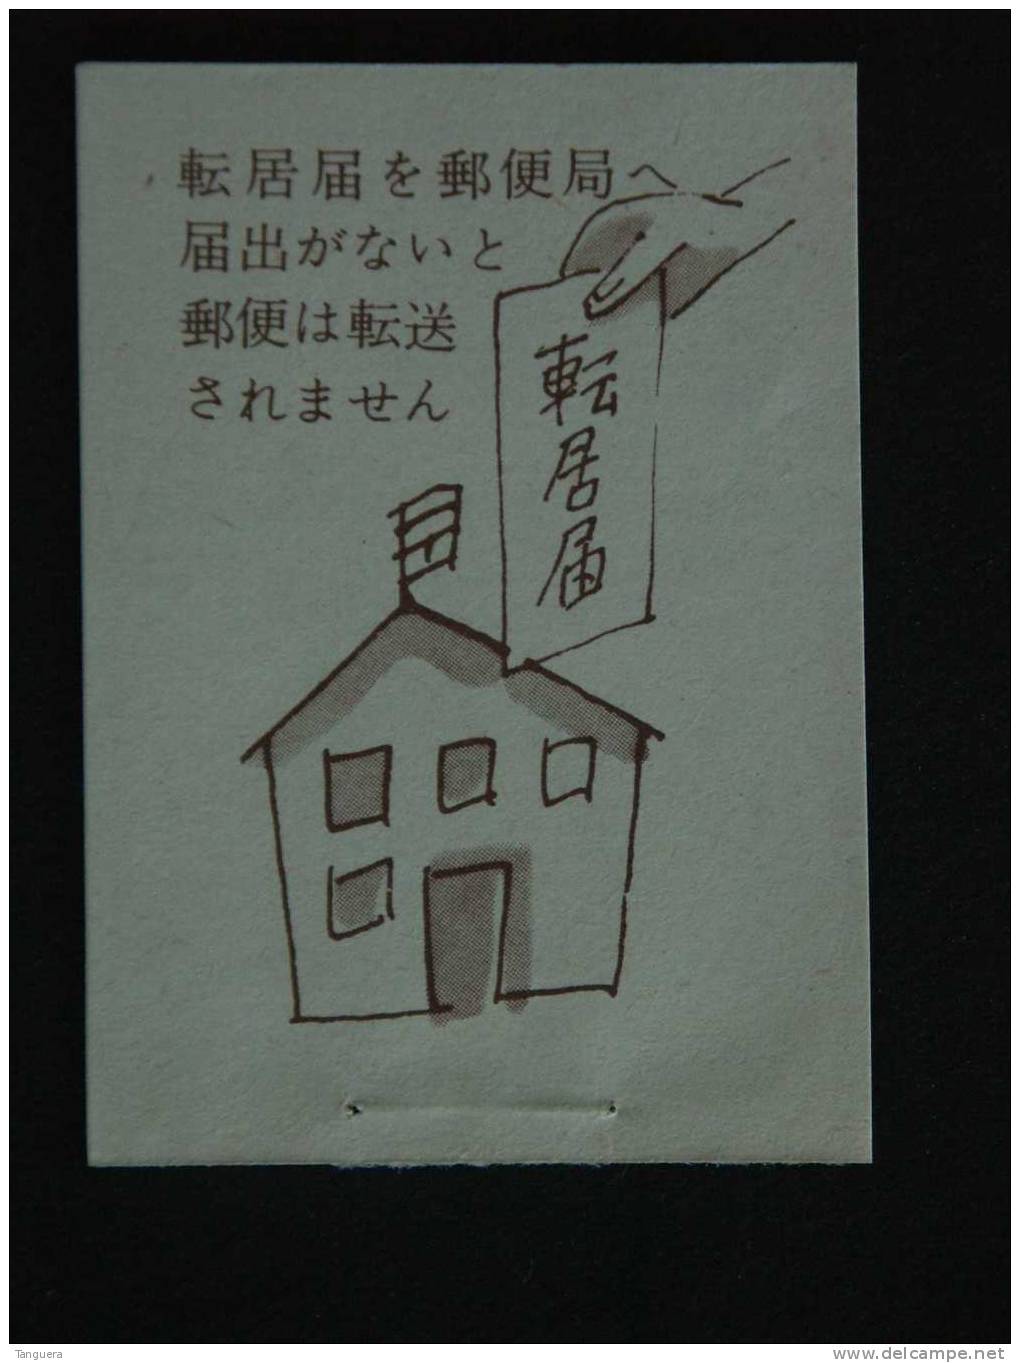 転居届を郵便局へ
届出がないと
郵便は転送
されません
転居届
Tanguera
www.delcampe.net